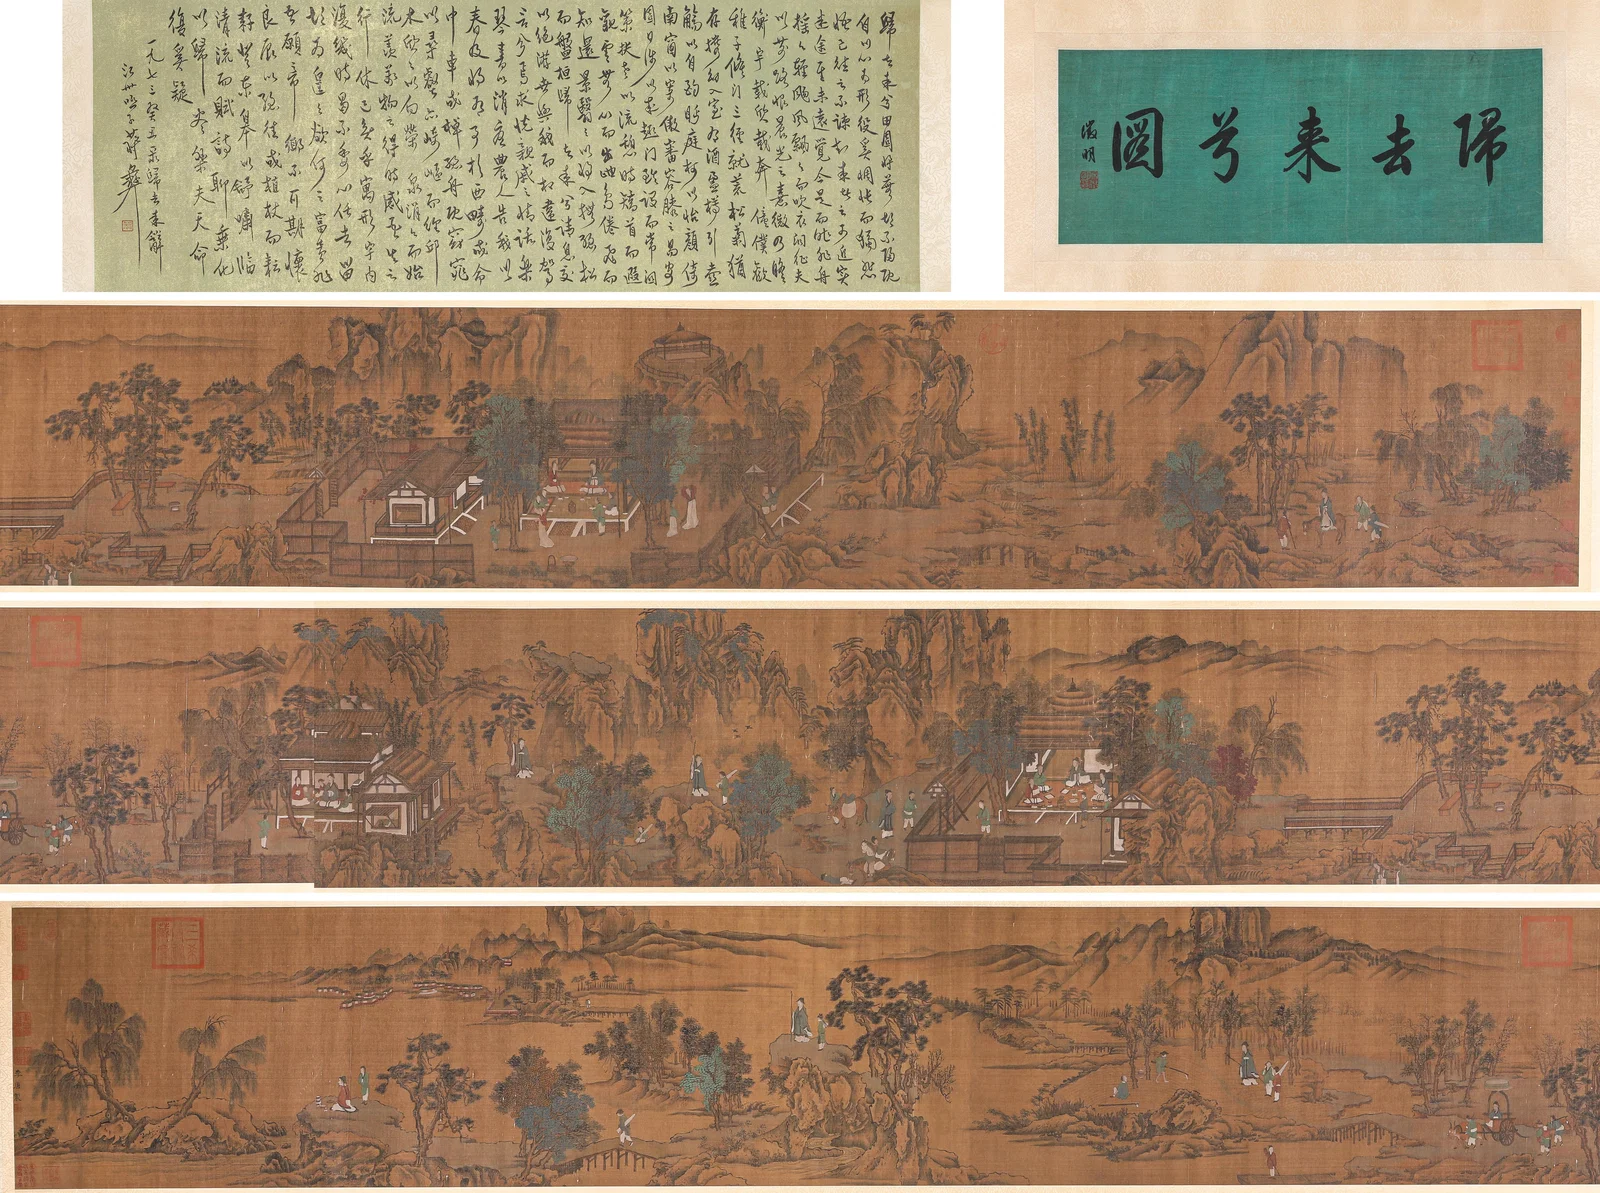 歸去来兮圖
徵明
歸去来兮田園將蕪胡不歸既
自以心為形役奚惆悵而獨悲
悟已往之不諫知来者之可追實
迷途其未遠覺今是而昨非舟
搖々輕颺風飄々而吹衣問征夫
以前路恨晨光之熹微乃瞻
衡宇載欣載奔僮僕歡
稚子候門三徑就荒松菊猶
存攜幼入室有酒盈樽引壺
觴以自酌眄庭柯以怡顏倚
南窗以寄傲審容膝之易安
園日涉以成趣門雖設而常関
策扶老以流憩時矯首而遐
觀雲無心而出岫鳥倦飛而
知還景翳々以將入撫孤松
而盤桓歸去来兮請息交
以絕游世與我而相違復駕
言兮焉求悅親戚之情話樂
琴書以消憂農人告我以
春及將有事於西疇或命
巾車或棹孤舟既窈窕
以尋壑亦崎嶇而經邱
木欣々以向榮泉涓々而始
流羨萬物之得時感吾生之
行休已矣乎寓形宇内
復幾時曷不委心任去留
胡為皇々欲何之富貴非
吾願帝鄉不可期懷
良辰以孤往或植杖而耘
耔登東皋以舒嘯臨
清流而賦詩聊乗化
以歸盡樂夫天命
復奚疑
一九七三癸丑录歸去来辭
蔣彝